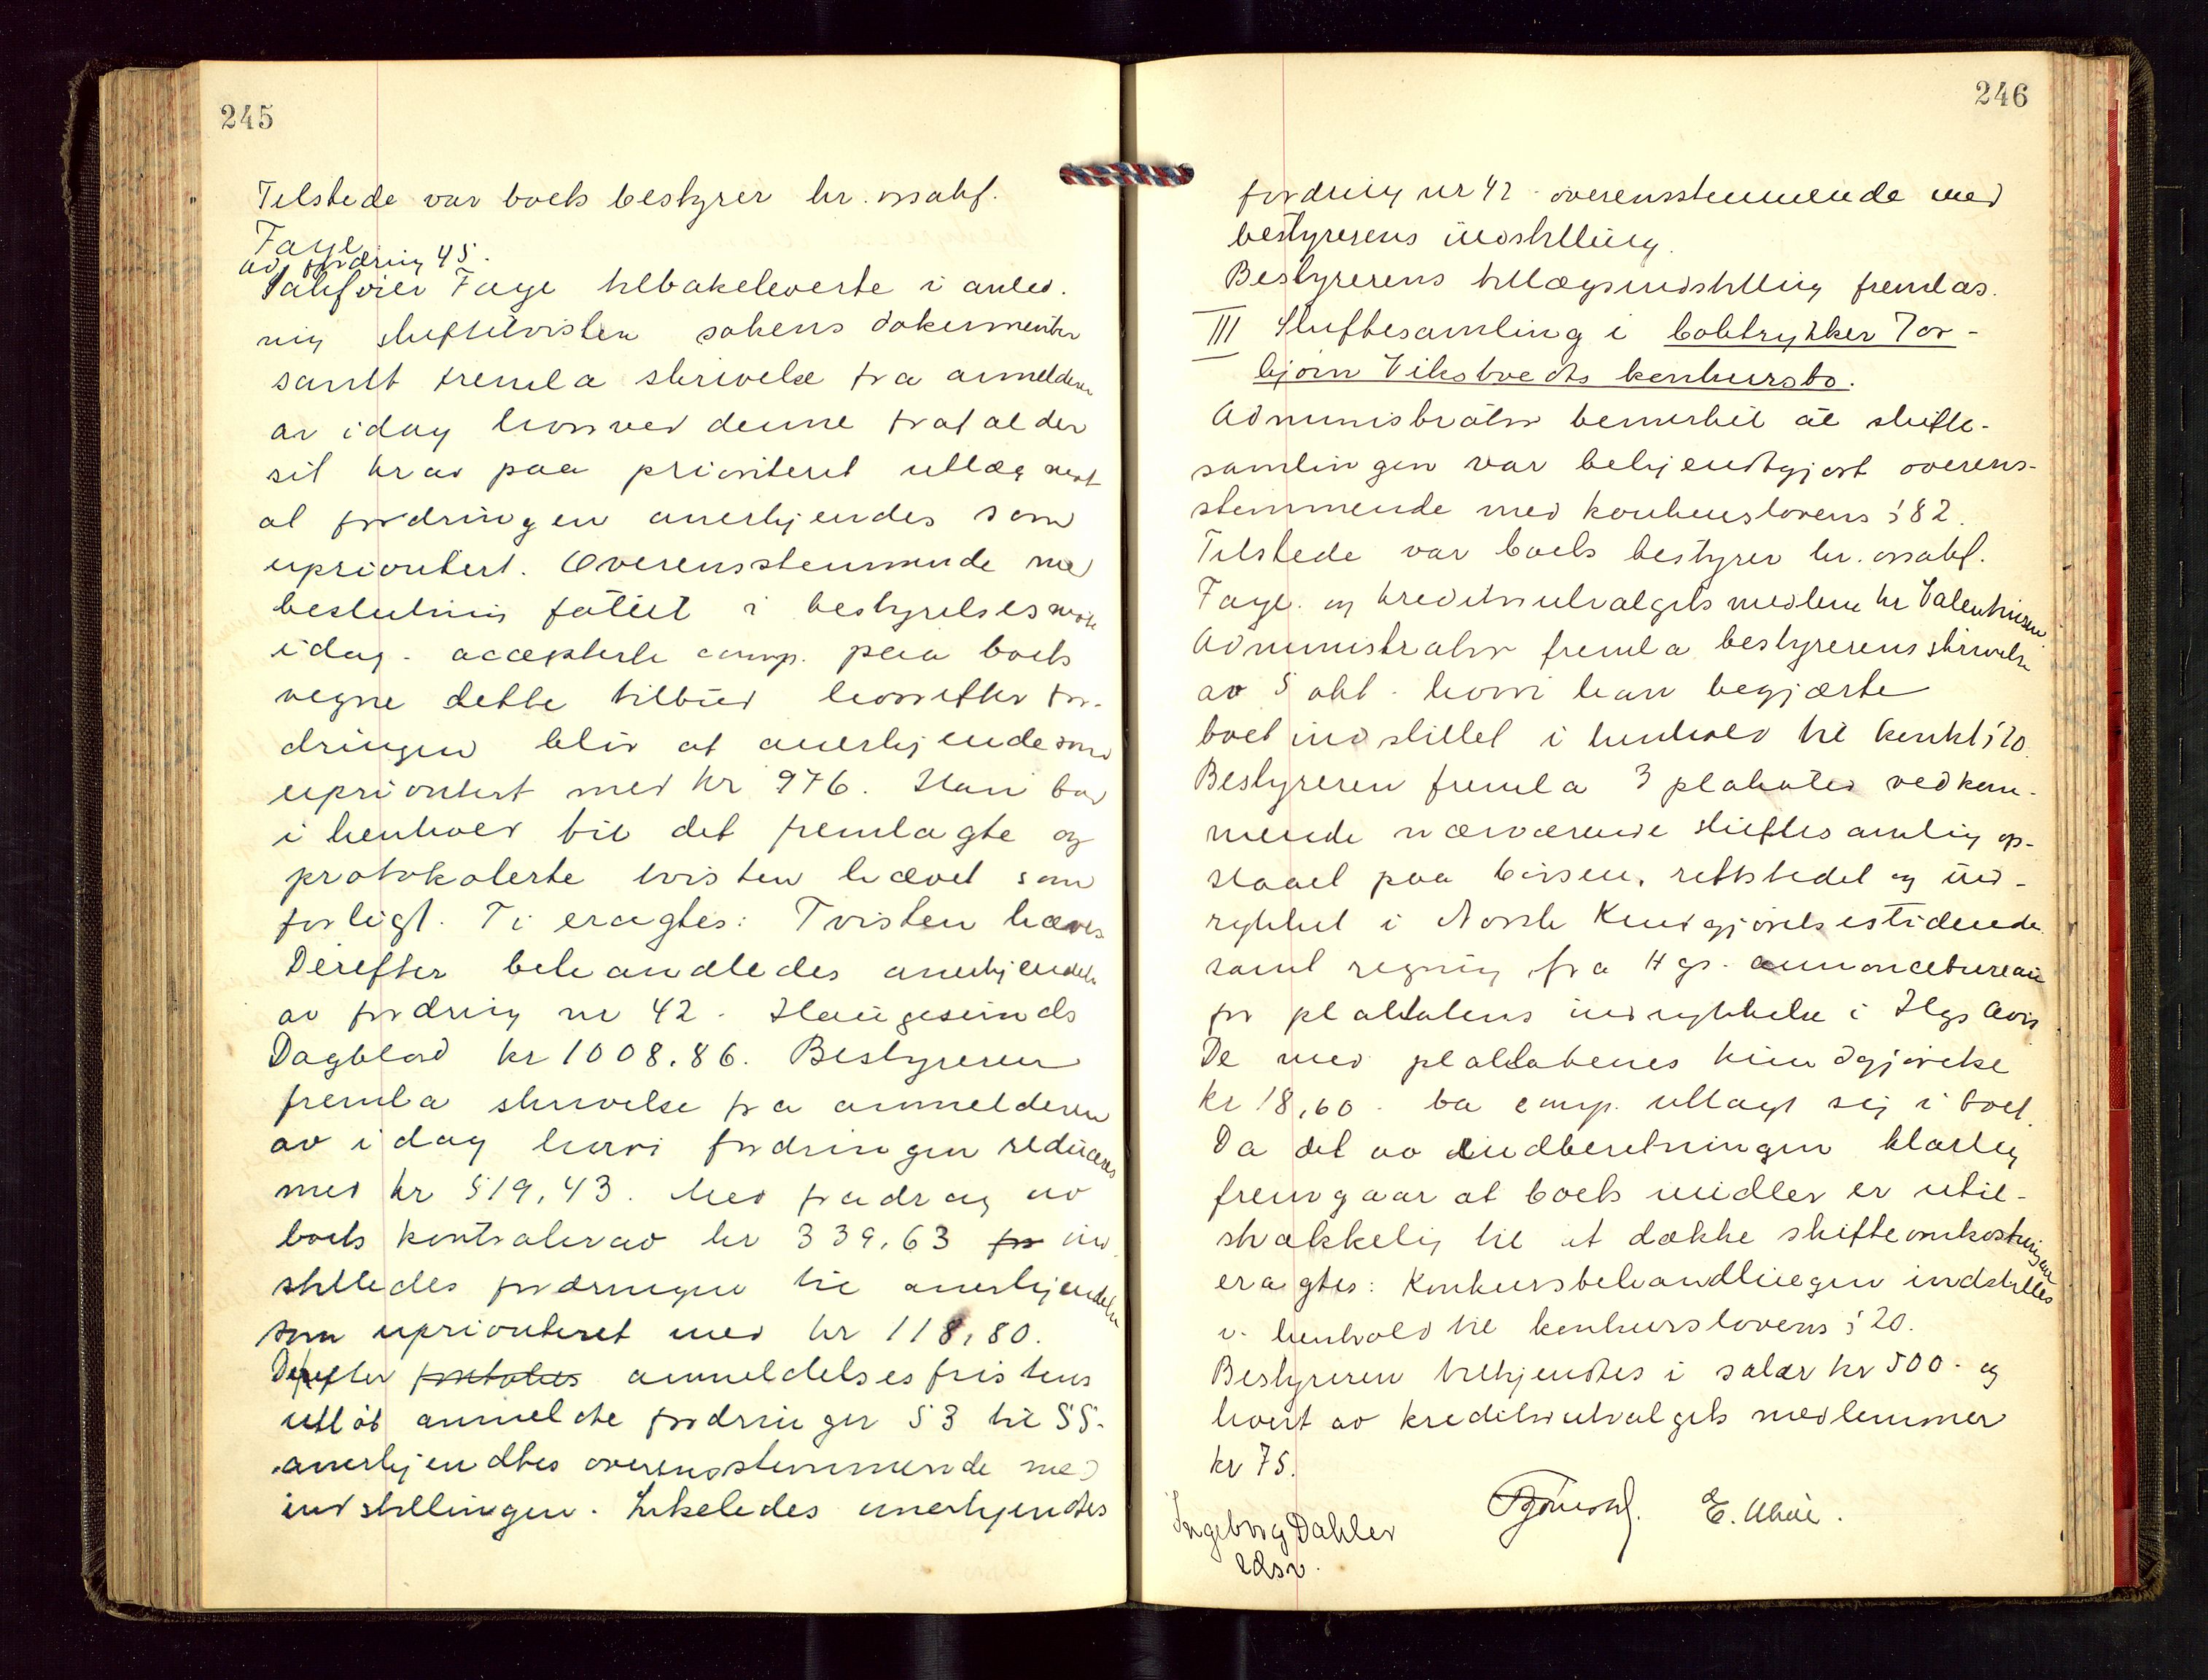 245
Tilstede var boets bestyrer hr. ossakf.
Faye
ad. fordring 45.
Sakfører Faye tilbakeleverte i anled.
nig skiftetvisten sakens dokumenter
samt fremla skrivelse fra anmelderen
av idag hvorved denne frafalder
sit krav paa prioritert utlæg mot
at fordringen anerkjendes som
uprioritert. Overensstemmende med
beslutning fattet i bestyrelsesmøte
idag - accepterte comp. paa boets
vegne dette tilbud hvorefter for-
dringen blir at anerkjende som
uprioritert med kr 976. Han bad
i henhold til det fremlagte og
protokolerte tvisten hævet som
forligt. Ti eragtes: Tvisten hæves
Derefter behandledes anerkjendelse
av fordring nr 42 - Haugesunds
Dagblad kr 1008.86. Bestyreren
fremla skrivelse fra anmelderen
av idag hvori fordringen reduceres
med kr 519,43. Med fradrag av
boets kontrakrav kr 339,63 for ind
stilledes fordringen til anerkjendelse
som uprioriteret med kr 118,80.
Derefter anmeldelsesfristens
utløb anmeldte fordringer 53 til 55.
anerkjendtes overensstemmende med
indstillingen. Likeledes anerkjendtes
246
fordring nr 42 - overensstemmende med
bestyrerens indstilling.
Bestyrerens tillægsindstilling fremlas.
III Skiftesamling i boktrykker Tor-
bjørn Vikstvedts konkursbo.
Administrator bemerket at skifte-
samlingen var bekjendtgjort overens-
stemmende med konkurslovens § 82.
Tilstede var boets bestyrer hr. ossakf.
Faye. og kreditorutvalgets medlem hr Valentinsen
Administrator fremla bestyrerens skrivelse
av 5 okt. hvori han begjærte
boet indstillet i henhold til konkl § 20.
Bestyreren fremla 3 plakater vedkom-
mende nærværende skiftesamling op-
slaaet paa børsen, rettstedet og ind-
rykket i Norsk Kundgjørelsestidende
samt regning fra Hgs. annoncebureau
for plakatens indrykkelse i Hgs Avis
De med plakatenes kundgjørelse
kr 18,60. ba comp. utlagt sig i boet.
Da det av indberetningen klarlig
fremgaar at boets midler er util-
strækkelig til at dække skifteomkostningene
eragtes: Konkursbehandlingen indstilles
i henhold til konkurslovens § 20.
Bestyreren tilkjendtes i salær kr 500.- og
hvert av kreditorutvalgets medlemmer
kr 75.
Ingeborg Dahler
edsv.